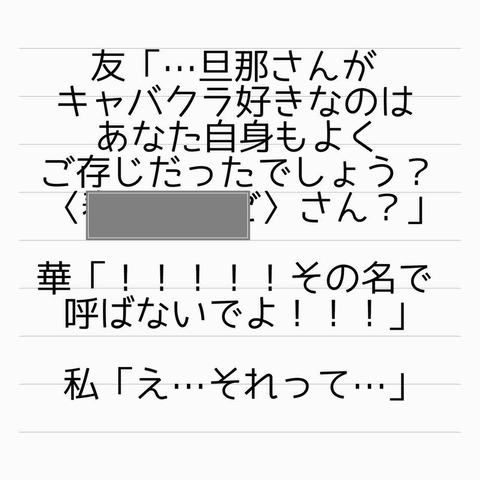 友「…旦那さんが
キャバクラ好きなのは
あなた自身もよく
ご存じだったでしょう？
〈 〉さん？」
華「！！！！！その名で
呼ばないでよ！！！」
私「え…それって…」